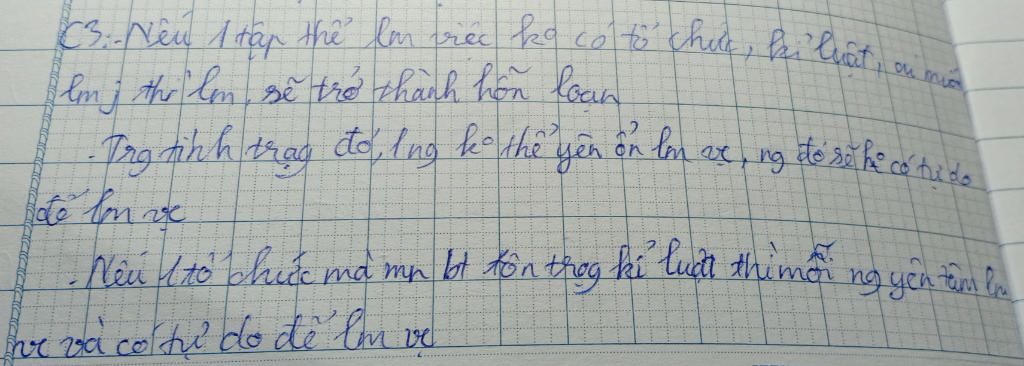 C3: - Nếu 1 tập thể lm việc ko có tổ chức, kỉ luật, ai muốn
lm j thì lm, sẽ trở thành hỗn loạn
- Trg tình trạg đó, 1 ng ko thể yên ổn lm vc, ng đó sẽ ko có tự do
để lm vc
- Nếu 1 tổ chức mà mn bt tôn trọg kỉ luật thì mỗi ng yên tâm lm
vc và có tự do để lm vc